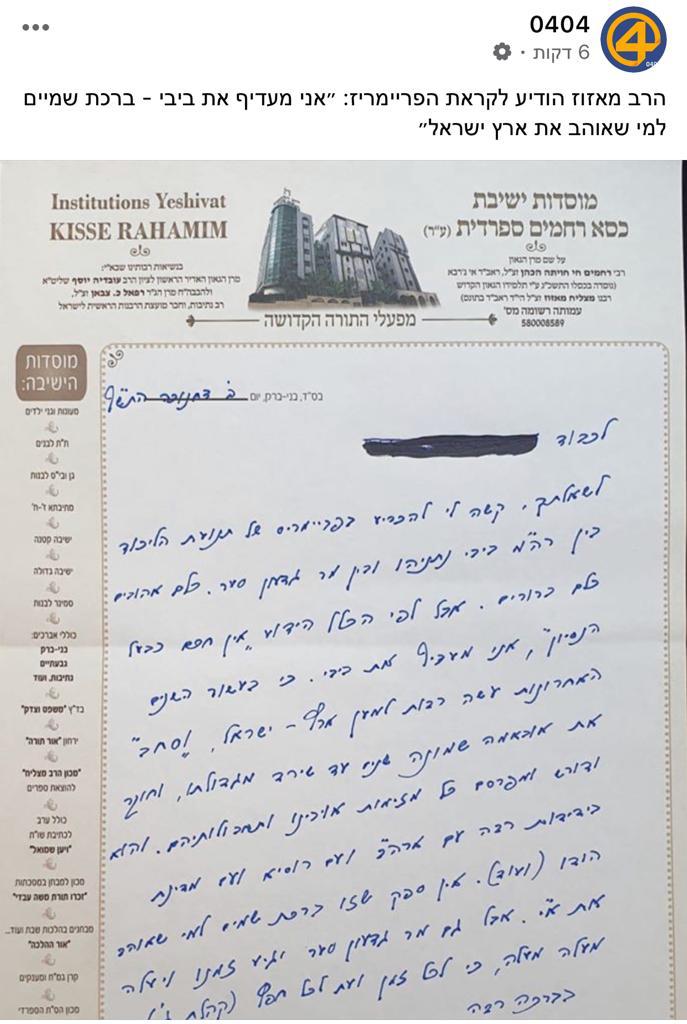 0404
6 דקות ·
הרב מאזוז הודיע לקראת הפריימריז: ״אני מעדיף את ביבי - ברכת שמיים
למי שאוהב את ארץ ישראל״
Institutions Yeshivat
KISSE RAHAMIM
מוסדות ישיבת
כסא רחמים ספרדית (ע״ר)
על שם מרן הגאון
רבי רחמים חי חויתה הכהן זצ״ל, ראב״ד אי ג׳רבא
(נוסדה בכסלו התשכ״ג ע״י תלמידו הגאון הקדוש
רבנו מצליח מאזוז זצ״ל הי״ד ראב״ד בתונס)
עמותה רשומה מס׳
580008589
בנשיאות רבותינו שבא״י:
מרן הגאון האדיר הראשון לציון הרב עובדיה יוסף שליט״א
ולהבבח״ח מרן הג״ר רפאל כ. צבאן זצ״ל,
רב נתיבות, וחבר מועצת הרבנות הראשית לישראל
מפעלי התורה הקדושה
מוסדות
הישיבה:
מעונות וגני ילדים
ת״ת לבנים
גן ובי״ס לבנות
מתיבתא ז׳-ח׳
ישיבה קטנה
ישיבה גדולה
סמינר לבנות
כוללי אברכים:
בני-ברק
גבעתיים
נתיבות, ועוד
בד״ץ ״משפט וצדק״
ירחון ״אור תורה״
״מכון הרב מצליח״
להוצאת ספרים
כולל ערב
לכתיבת שו״ת
״ויען שמואל״
מכון למבחן במסכתות
״זכרו תורת משה עבדי״
מבחנים בהלכות שבת ועוד...
״אור ההלכה״
קרן גמ״ח ומענקים
מכון הס״ת הספרדי
בס״ד, בני-ברק, יום ב׳ דחנוכה התש״ף
לכבוד
לשאלתך, קשה לי להכריע בפריימריס של תנועת הליכוד
בין רה״מ ביבי נתניהו ובין מר גדעון סער. כלם אהובים
כלם ברורים. אבל לפי הכלל הידוע "אין חכם כבעל
הנסיון", אני מעדיף את ביבי. כי בעשור השנים
האחרונות עשה רבות למען ארץ-ישראל, "וסחב"
את אובאמה שמונה שנים עד שירד מגדולתו, וחוקר
ודורש ומפרסם כל מזימות אויבינו ותחבולותיהם. והוא
בידידות רבה עם ארה״ב ועם רוסיא ועם מדינת
הודו (ועוד). אין ספק שזו ברכת שמים למי שאוהב
את א״י. אבל גם מר גדעון סער יגיע זמנו ויעלה
מעלה מעלה, כי לכל זמן ועת לכל חפץ (קהלת ג׳
בברכה רבה